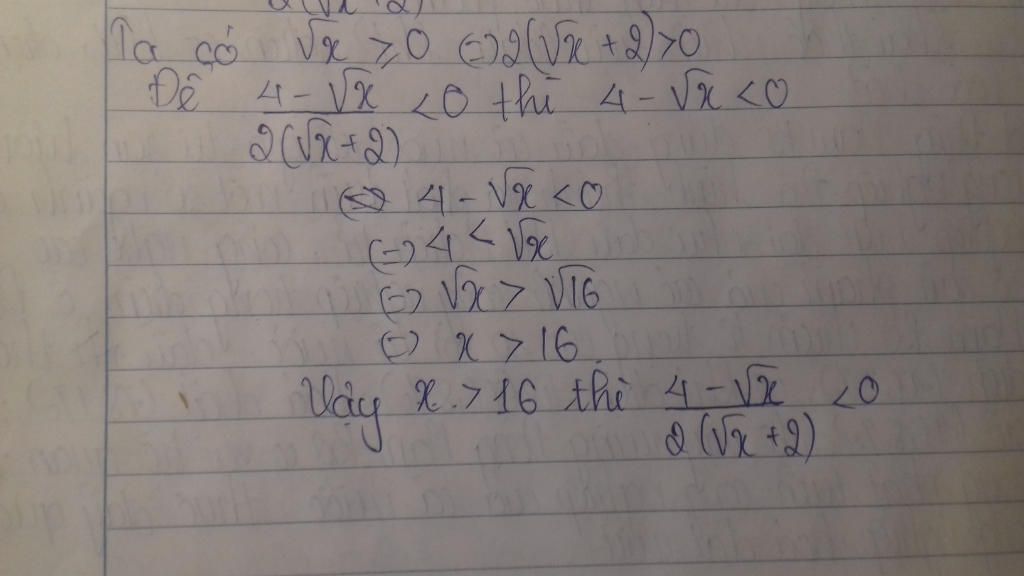 2(√x+2)
Ta có √x ≥ 0 (=) 2(√x + 2) > 0
Để 4 - √x / 2(√x+2) < 0 thì 4 - √x < 0
(=) 4 - √x < 0
(=) 4 < √x
(=) √x > √16
(=) x > 16.
Vậy x > 16 thì 4 - √x / 2(√x + 2) < 0